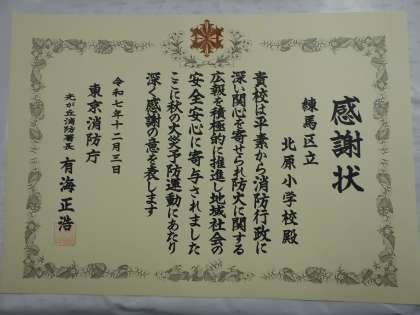 感謝状
練馬区立
北原小学校殿
貴校は平素から消防行政に
深い関心を寄せられ防火に関する
広報を積極的に推進し地域社会の
安全安心に寄与されました
ここに秋の火災予防運動にあたり
深く感謝の意を表します
令和七年十二月三日
東京消防庁
光が丘消防署長 有海正浩